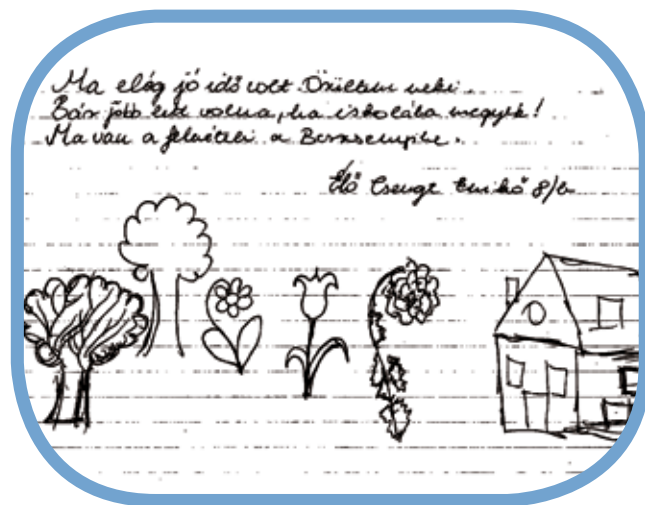 Ma elég jó idő volt. Örültem neki.
Bár jobb lett volna, ha iskolába megyek!
Ma van a felvételi a Berzsenyibe.
Élő Csenge Enikő 8/b